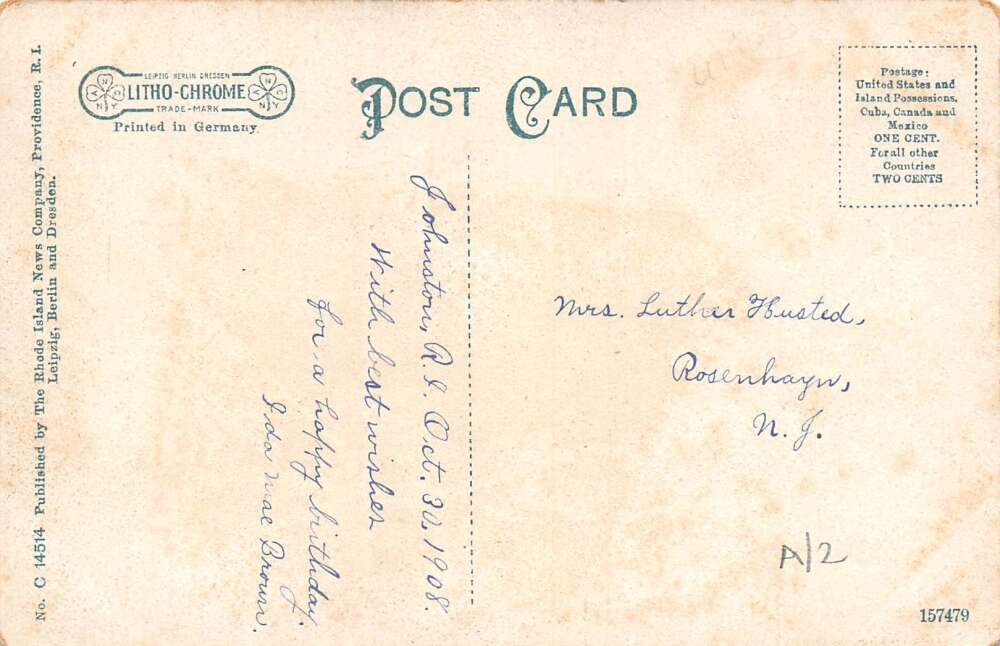 No. C 14514 Published by The Rhode Island News Company, Providence, R. I.
Leipzig, Berlin and Dresden.
LEIPZIG BERLIN DRESDEN
LITHO-CHROME
TRADE-MARK
Printed in Germany.
POST CARD
Postage:
United States and
Island Possessions,
Cuba, Canada and
Mexico
ONE CENT.
For all other
Countries
TWO CENTS
Johnston, R. I. Oct. 30, 1908.
With best wishes
for a happy birthday.
Ida Mae Brown.
Mrs. Luther Husted,
Rosenhayn,
N. J.
A/2
157479